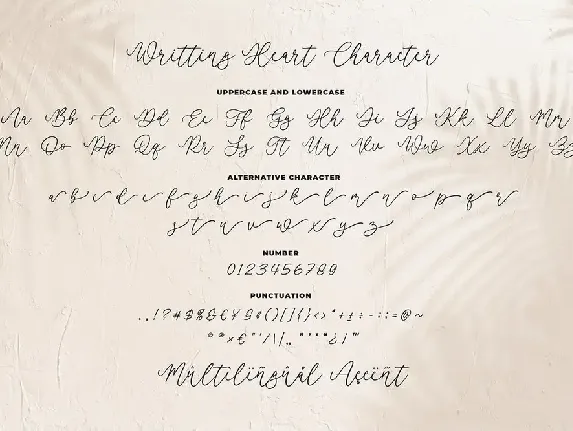 Writting Heart Character
UPPERCASE AND LOWERCASE
Aa Bb Cc Dd Ee Ff Gg Hh Ii Jj Kk Ll Mm
Nn Oo Pp Qq Rr Ss Tt Uu Vv Ww Xx Yy Zz
ALTERNATIVE CHARACTER
a b c d e f g h i j k l m n o p q r
s t u v w x y z
NUMBER
0123456789
PUNCTUATION
Multilingual Ascint